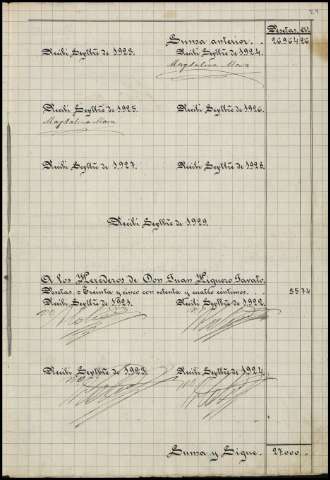 24
Pesetas. Cts.
Suma anterior. . 26964 26
Recibí Sepbre de 1923. Recibí Sepbre de 1924.
Magdalena Mora
Recibí Sepbre de 1925. Recibí Sepbre de 1926.
Magdalena Mora
Recibí Sepbre de 1927. Recibí Sepbre de 1928.
Recibí Sepbre de 1929
A los Herederos de Don Juan
Pesetas. Treinta y cinco con setenta y cuatro céntimos. . . 35 74
Recibí Sepbre de 1921. Recibí Sepbre de 1922.
Recibí Sepbre de 1923. Recibí Sepbre de 1924.
Suma y Sigue. 27.000.